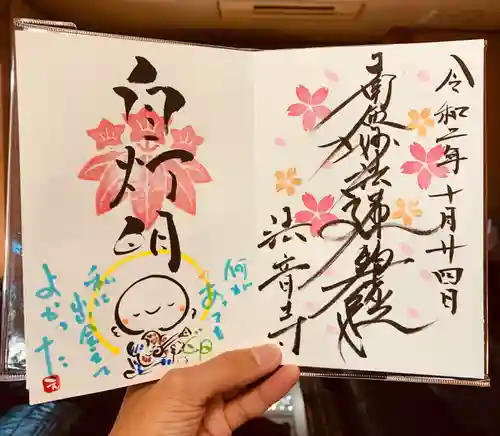 令和二年十月廿四日
南無妙法蓮華経
法音寺
自灯明
何が
あっても
私に
出会えて
よかった